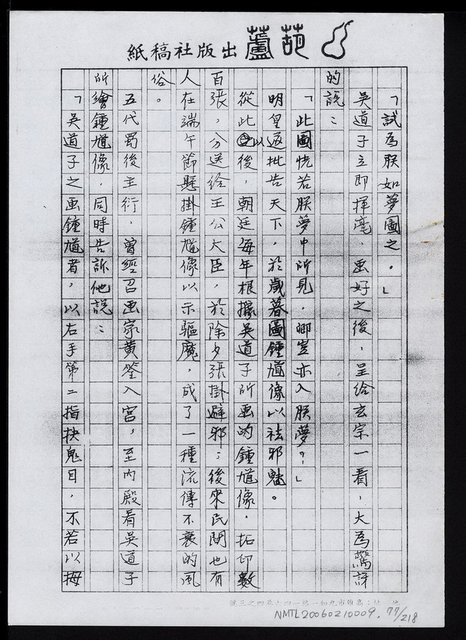 葫蘆出版社稿紙
「試為朕如夢圖之。」
吳道子立即揮毫，画好之後，呈給玄宗一看，大為驚訝
的說：
「此圖恍若朕夢中所見，卿豈亦入朕夢？」
明皇返批告天下，於歲暮圖鍾馗像以祛邪魅。
從此以後，朝廷每年根據吳道子所画的鍾馗像，拓印數
百張，分送給王公大臣，於除夕張掛避邪；後來民間也有
人在端午節懸掛鍾馗像以示驅魔，成了一種流傳不衰的風
俗。
五代蜀後主衍，曾經召画家黃筌入宮，至內殿看吳道子
所繪鍾馗像，同時告訴他說：
「吳道子之画鍾馗者，以右手第二指抉鬼目，不若以拇
NMTL20060210009.77/218